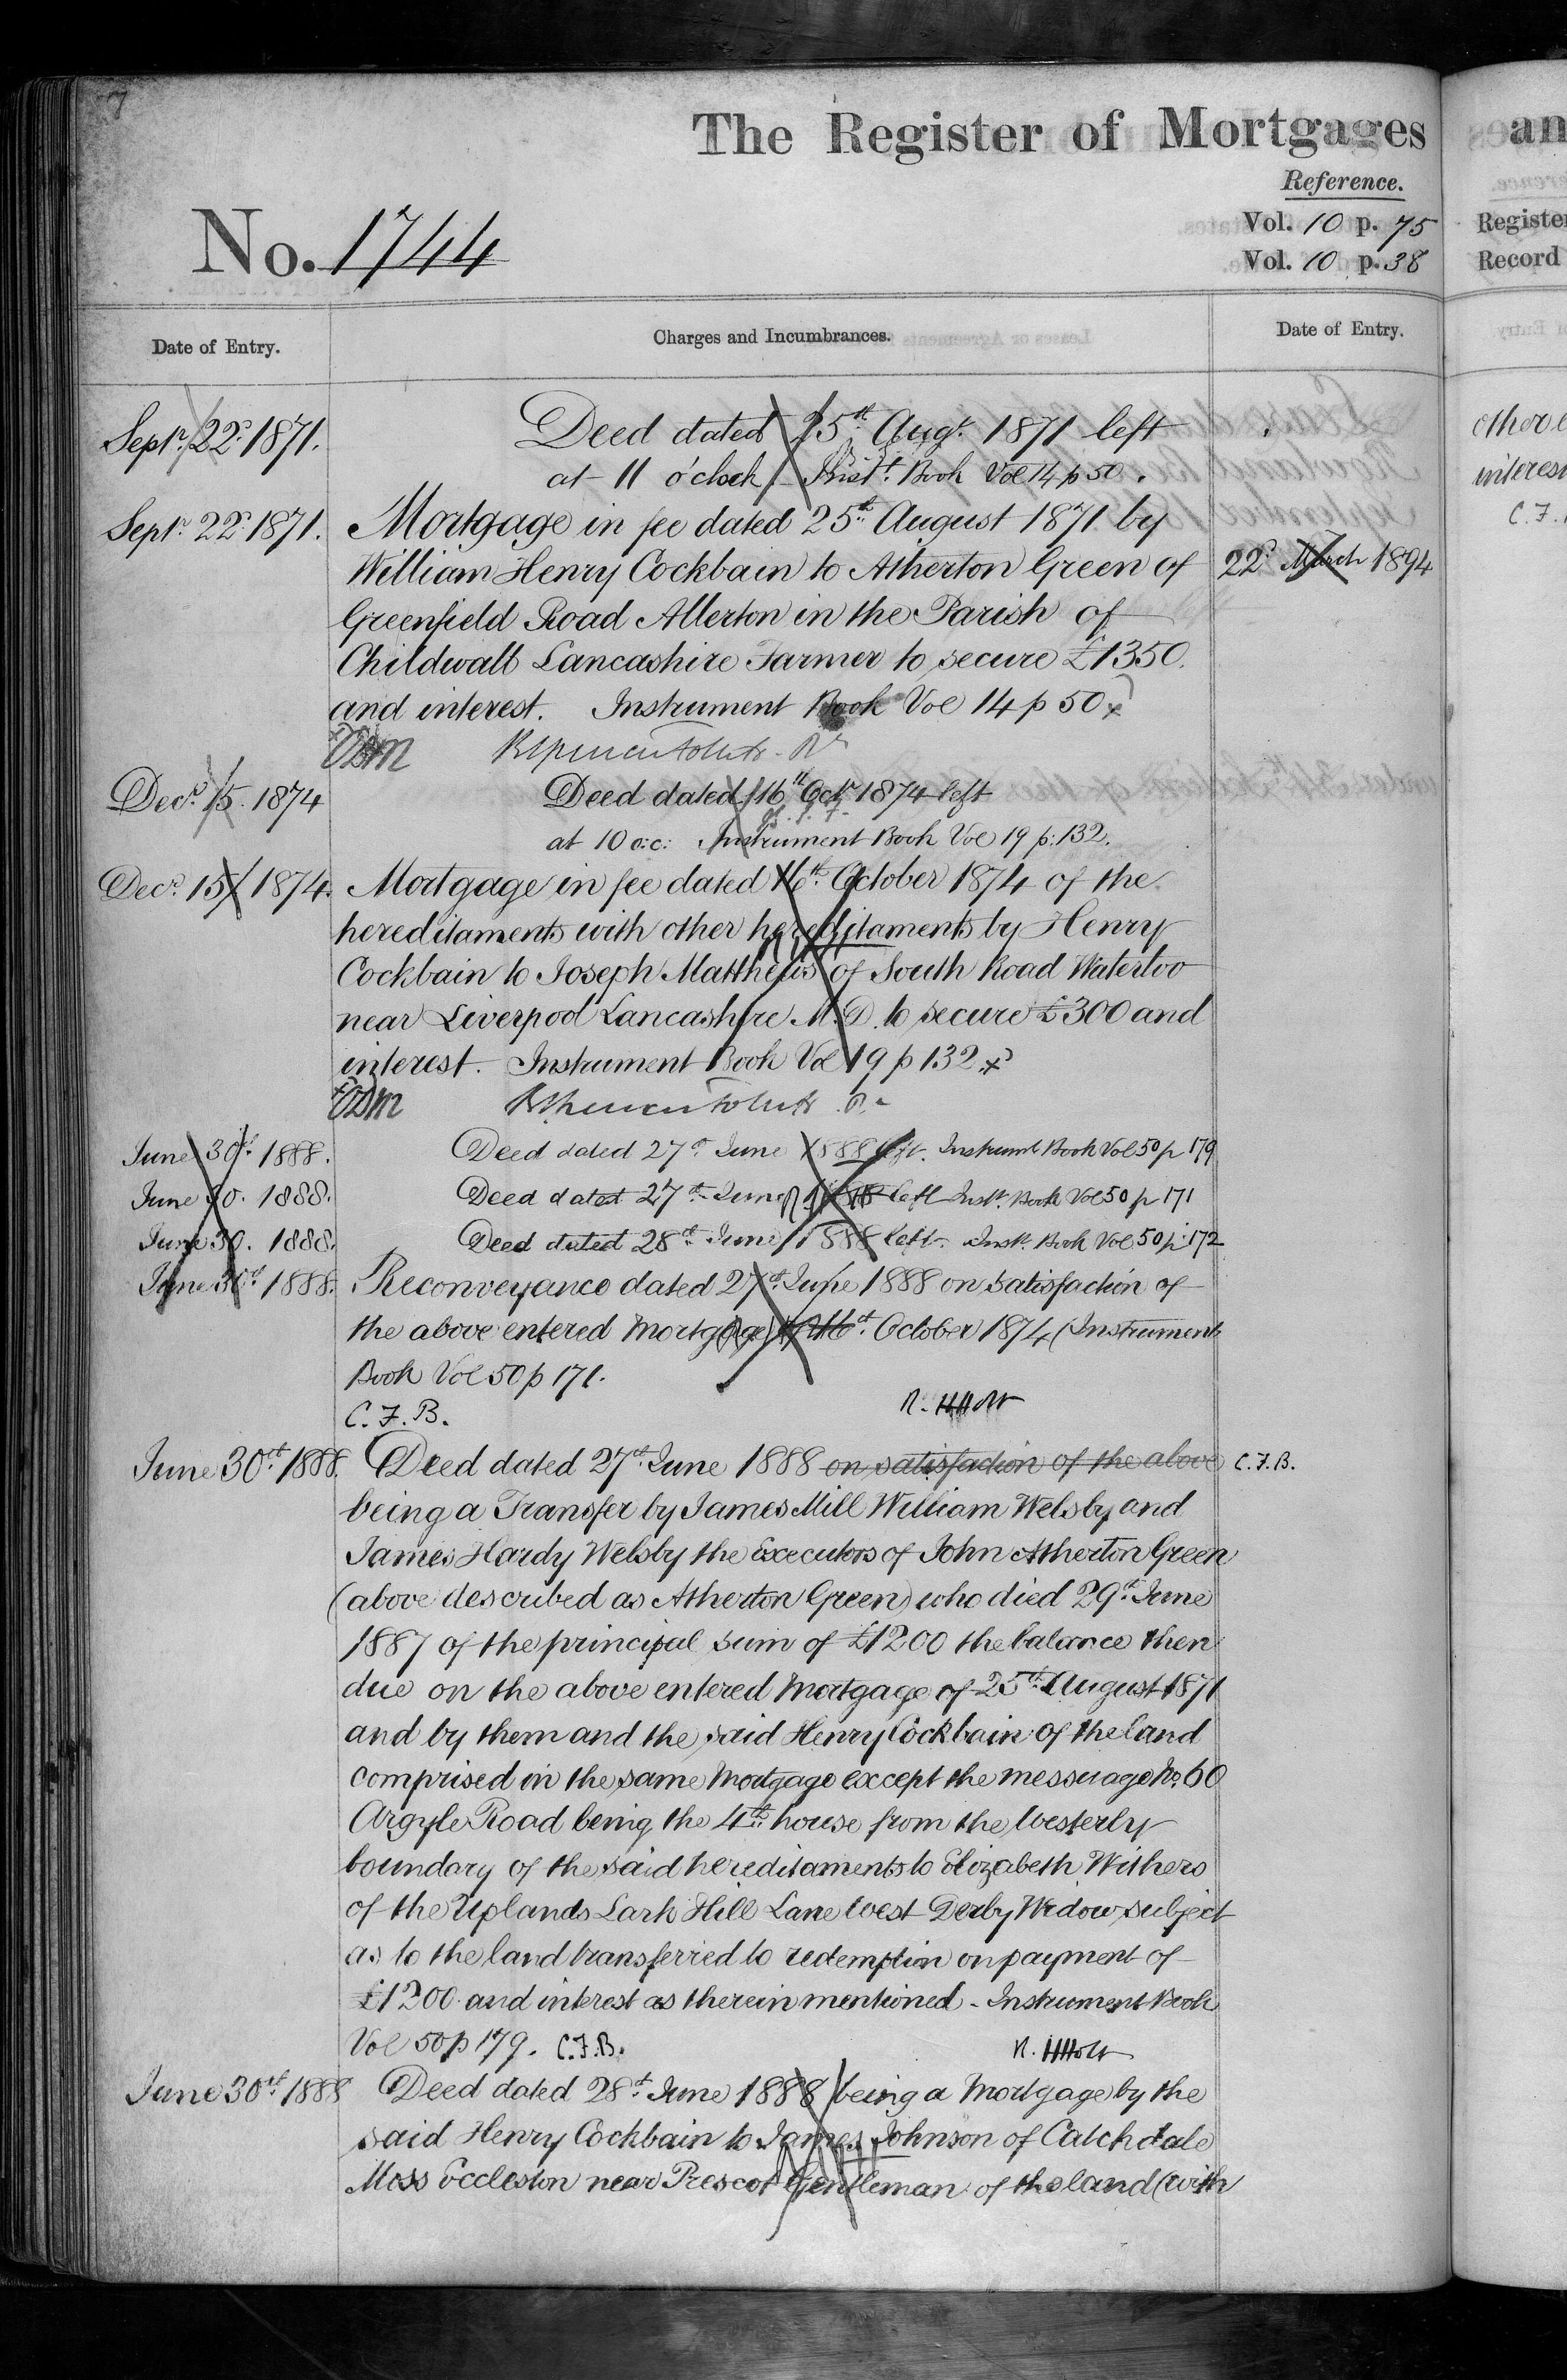 7
The Register of Mortgages
Reference.
Vol. 10 p. 75
Vol. 10 p. 38
No. 1744
Date of Entry.
Charges and Incumbrances.
Date of Entry.
Septr. 22d. 1871.
Deed dated 25th Augt. 1871 left
at 11 o'clock Inst. Book Vol 14 p 50.
Septr. 22d. 1871.
Mortgage in fee dated 25th August 1871 by
William Henry Cockbain to Atherton Green of
22d March 1894
Greenfield Road Allerton in the Parish of
Childwall Lancashire Farmer to secure £1350.
and interest. Instrument Book Vol 14 p 50
Decr. 15. 1874
Deed dated 16th Octr. 1874 left
at 10 o:c: Instrument Book Vol 19 p: 132.
Decr. 15 1874.
Mortgage in fee dated 16th October 1874 of the
hereditaments with other hereditaments by Henry
Cockbain to Joseph Matthews of South Road Waterloo
near Liverpool Lancashire M.D. to secure £300 and
interest. Instrument Book Vol 19 p 132
June 30th 1888.
Deed dated 27th June 1888 left. Instrumt Book Vol 50 p 179
June 30. 1888.
Deed dated 27th June 1888 left Inst. Book Vol 50 p 171
June 30. 1888.
Deed dated 28th June 1888 left. Inst. Book Vol 50 p 172
June 30th 1888.
Reconveyance dated 27th June 1888 on satisfaction of
the above entered Mortgage of 16th October 1874 (Instrument
Book Vol 50 p 171.
C.F.B.
June 30th 1888.
Deed dated 27th June 1888 on satisfaction of the above
C.F.B.
being a Transfer by James Mill William Welsby and
James Hardy Welsby the Executors of John Atherton Green
(above described as Atherton Green) who died 29th June
1887 of the principal sum of £1200 the balance then
due on the above entered Mortgage of 25th August 1871
and by them and the said Henry Cockbain of the land
comprised in the same Mortgage except the messuage No. 60
Argyle Road being the 4th house from the Westerly
boundary of the said hereditaments to Elizabeth Withers
of the Uplands Lark Hill Lane West Derby Widow subject
as to the land transferred to redemption on payment of
£1200 and interest as therein mentioned - Instrument Book
Vol 50 p 179. C.F.B.
June 30th 1888
Deed dated 28th June 1888 being a Mortgage by the
said Henry Cockbain to James Johnson of Catchdale
Moss Eccleston near Prescot Gentleman of the land (with
an
Register
Record
other
interest
C.F.